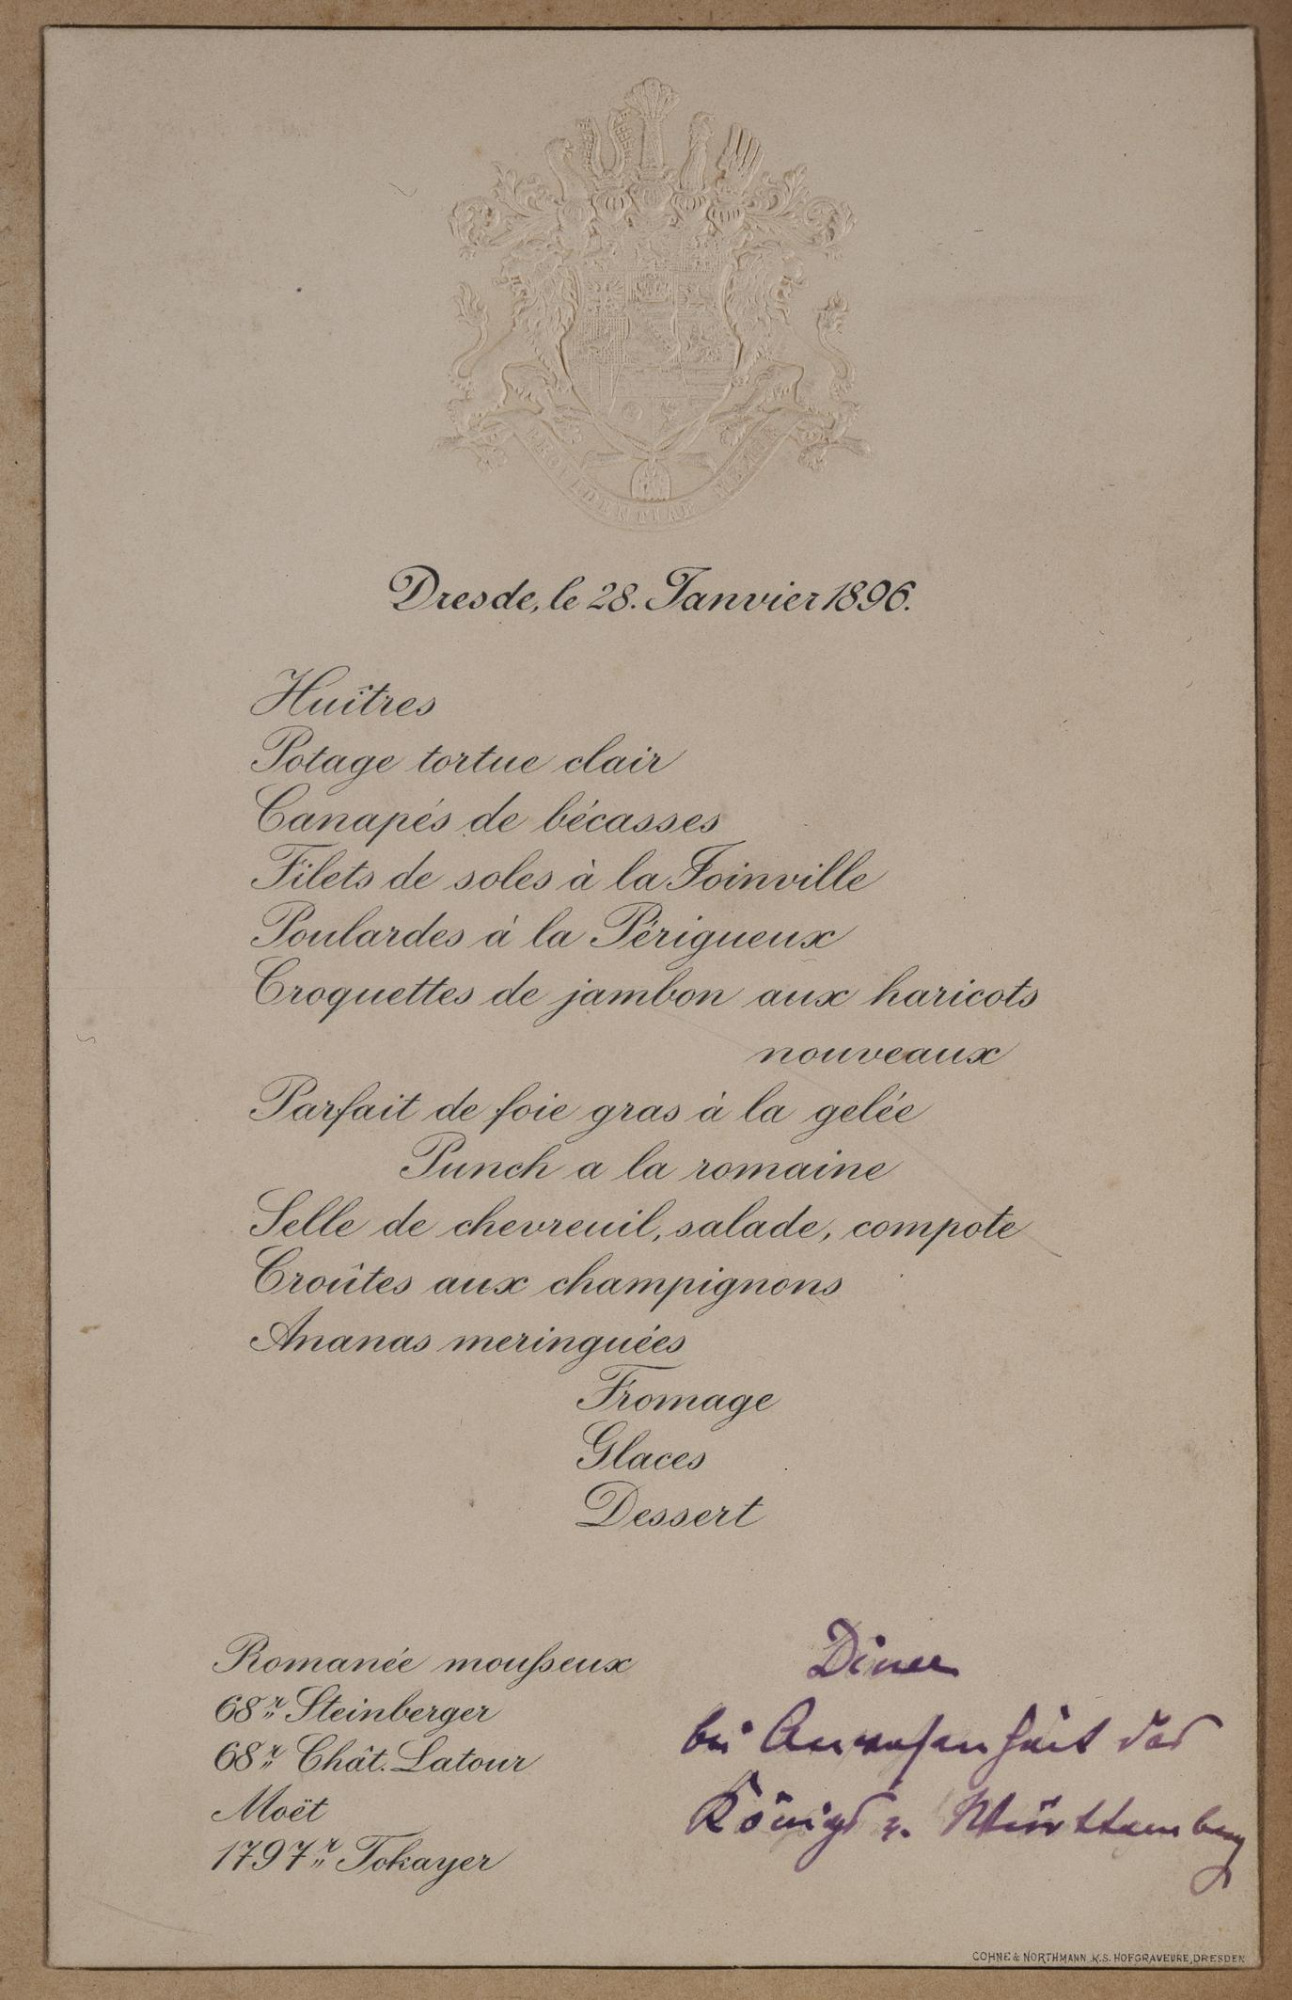 PROVIDENTIAE MEMOR
Dresde, le 28. Janvier 1896.
Huîtres
Potage tortue clair
Canapés de bécasses
Filets de soles à la Joinville
Poulardes à la Périgueux
Croquettes de jambon aux haricots
nouveaux
Parfait de foie gras à la gelée
Punch a la romaine
Selle de chevreuil, salade, compote
Croûtes aux champignons
Ananas meringuées
Fromage
Glaces
Dessert
Romanée mousseux
68r Steinberger
68r Chât. Latour
Moët
1797r Tokayer
Diner
bei Anwesenheit des
Königs v. Württemberg
COHNE & NORTHMANN K.S. HOFGRAVEURE, DRESDEN